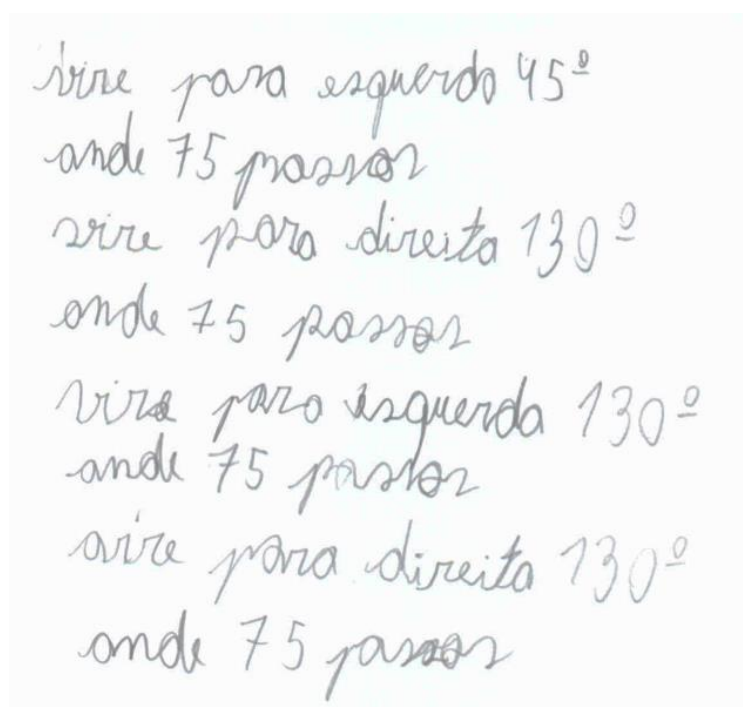 vire para esquerdo 45º
ande 75 passos
vire para direita 130º
ande 75 passos
vire para esquerda 130º
ande 75 passos
vire para direita 130º
ande 75 passos